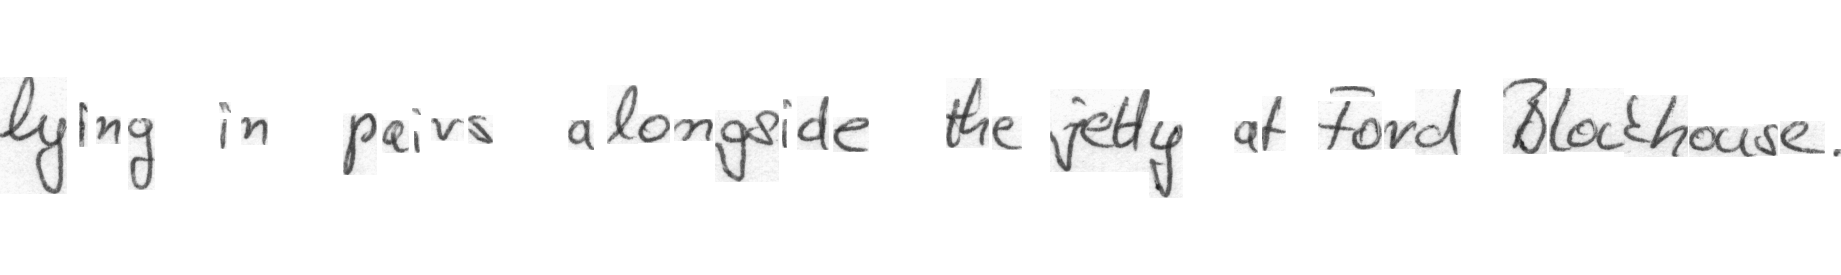 lying in pairs alongside the jetty at Ford Blockhouse.